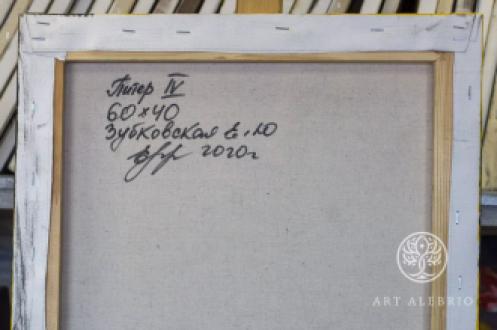 Питер IV
60×40
Зубковская Е.Ю
2020г
ART ALEBRIO